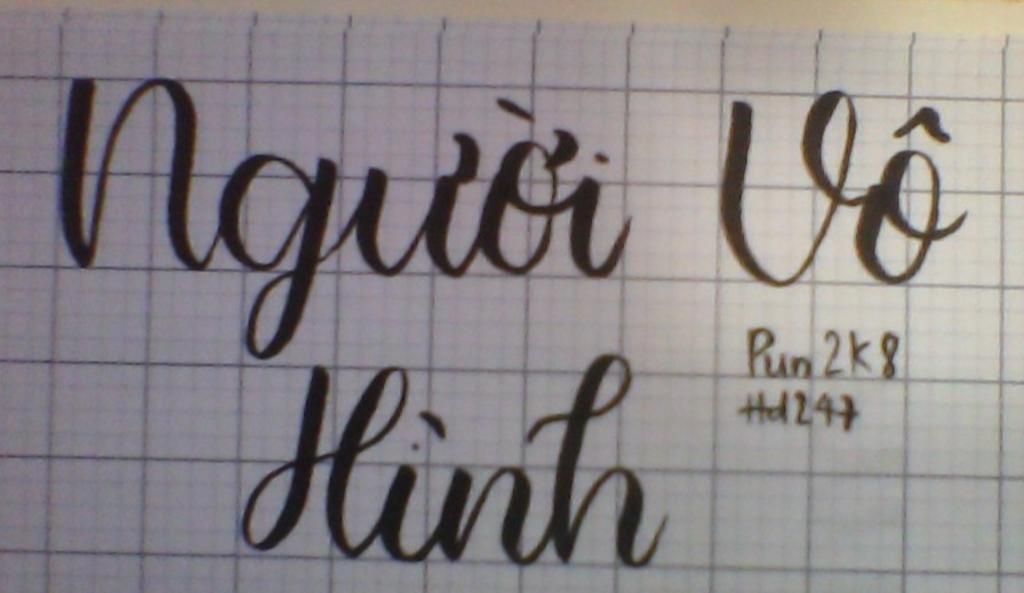 Người Vô
Hình
Pun2K8
Hd247